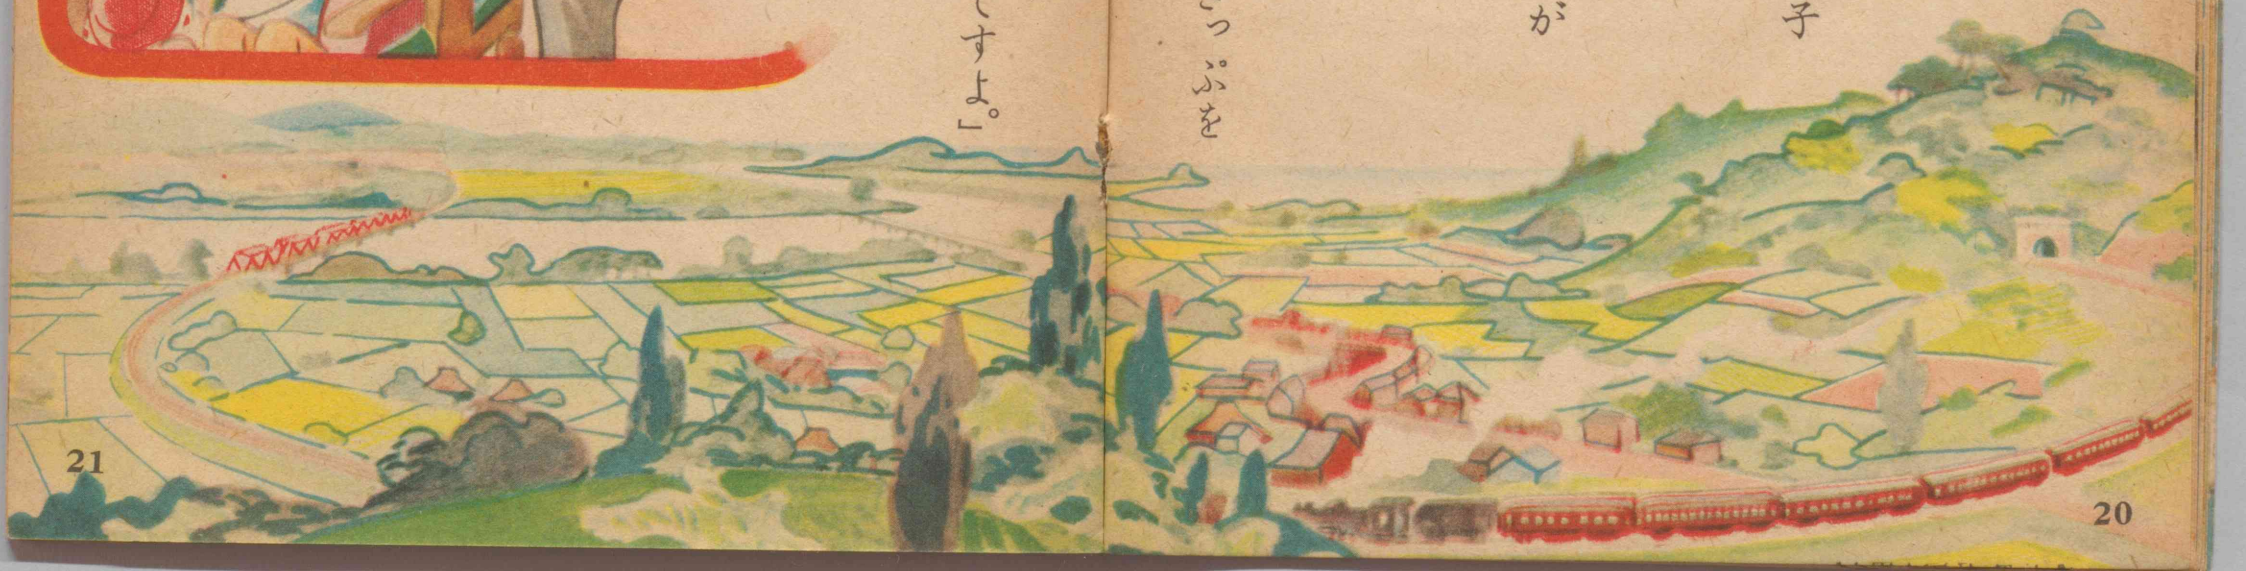 子
が
っぷを
すよ。」
20
21